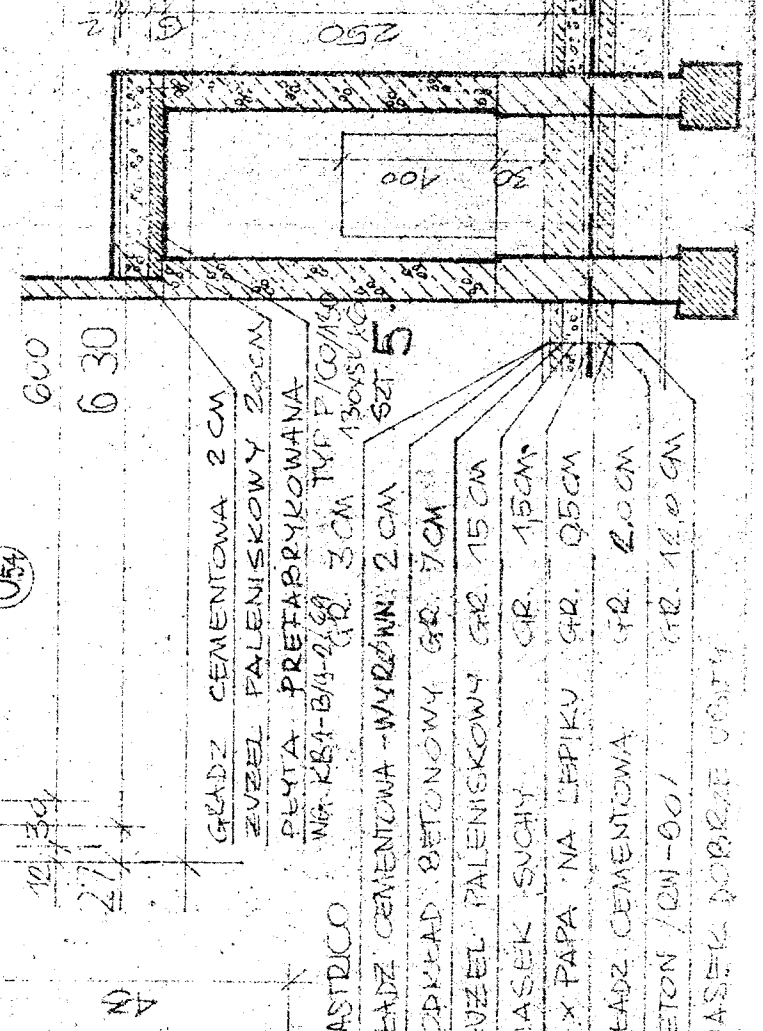 2
6
250
100
30
600
630
U54
12 30
27
GŁADZ CEMENTOWA 2 CM
ŻUŻEL PALENISKOWY 20CM
PŁYTA PREFABRYKOWANA
WG. KB1-
TYP P/CO/180
SZT 5
ASTRICO GR. 3 CM
ŁADZ CEMENTOWA-WYRÓWN. 2 CM
ODKŁAD BETONOWY GR. 7CM
UŻEL PALENISKOWY GR. 15 CM
IASEK SUCHY GR. 1,5CM.
X PAPA NA LEPIKU GR. 0,5CM
ŁADZ CEMENTOWA GR. 2,0 CM
ETON /RW-90/ GR. 12,0 CM
IASEK DOBRZE UBITY